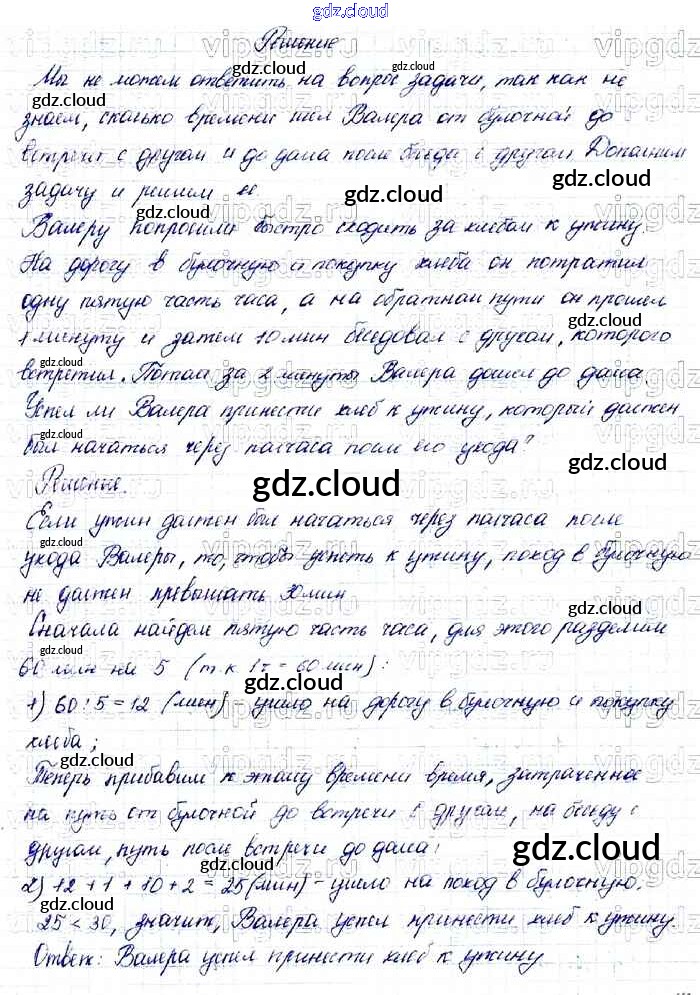 gdz.cloud
Решение
Мы не можем ответить на вопрос задачи, так как не
знаем, сколько времени шел Валера от булочной до
встречи с другом и до дома после беседы с другом. Дополним
задачу и решим её
Валеру попросили быстро сходить за хлебом к ужину.
На дорогу в булочную и покупку хлеба он потратил
одну пятую часть часа, а на обратном пути он прошел
1 минуту и затем 10 мин беседовал с другом, которого
встретил. Потом за 2 минуты Валера дошел до дома.
Успел ли Валера принести хлеб к ужину, который должен
был начаться через полчаса после его ухода?
Решение.
gdz.cloud
Если ужин должен был начаться через полчаса после
ухода Валеры, то, чтобы успеть к ужину, поход в булочную
не должен превышать 30 мин
Сначала найдем пятую часть часа, для этого разделим
60 мин на 5 (т.к 1ч = 60 мин):
1) 60 : 5 = 12 (мин) - ушло на дорогу в булочную и покупку
хлеба;
Теперь прибавим к этому времени время, затраченное
на путь от булочной до встречи с другом, на беседу с
другом, путь после встречи до дома:
2) 12 + 1 + 10 + 2 = 25 (мин) - ушло на поход в булочную.
25 < 30, значит, Валера успел принести хлеб к ужину.
Ответ: Валера успел принести хлеб к ужину